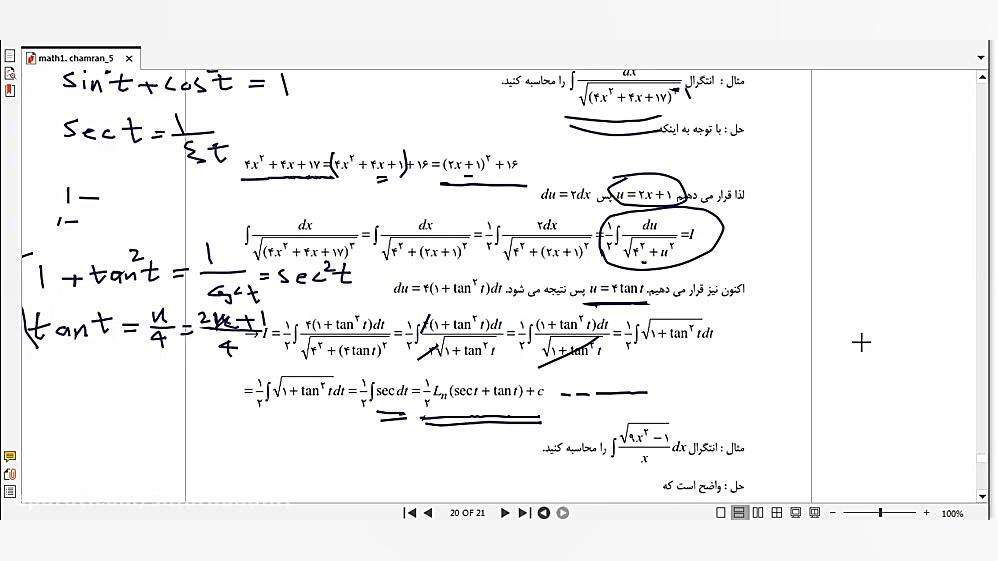 math1. chamran_5
sin²t + cos²t = 1
sec t = 1
1 —
1 + tan²t = 1/cos²t = sec²t
tan t = u/4 = 2x+1/4
مثال : انتگرال ∫ dx/√(۴x² + ۴x + ۱۷) را محاسبه کنید.
حل : با توجه به اینکه
۴x² + ۴x + ۱۷ = (۴x² + ۴x + ۱) + ۱۶ = (۲x + ۱)² + ۱۶
لذا قرار می دهیم u = ۲x + ۱ پس du = ۲dx
∫ dx/√(۴x² + ۴x + ۱۷)² = ∫ dx/√۴² + (۲x + ۱)² = ۱/۲ ∫ ۲dx/√۴² + (۲x + ۱)² = ۱/۲ ∫ du/√۴² + u² = I
اکنون نیز قرار می دهیم. u = ۴ tan t پس نتیجه می شود. du = ۴(۱ + tan² t)dt
I = ۱/۲ ∫ ۴(۱ + tan² t)dt/√۴² + (۴ tan t)² = ۱/۲ ∫ ۴(۱ + tan² t)dt/۴√۱ + tan² t = ۱/۲ ∫ (۱ + tan² t)dt/√۱ + tan² t = ۱/۲ ∫ √۱ + tan² t dt
= ۱/۲ ∫ √۱ + tan² t dt = ۱/۲ ∫ sec dt = ۱/۲ Lₙ(sec t + tan t) + c
مثال : انتگرال ∫ √۹x² − ۱/x dx را محاسبه کنید.
حل : واضح است که
20 OF 21
100%